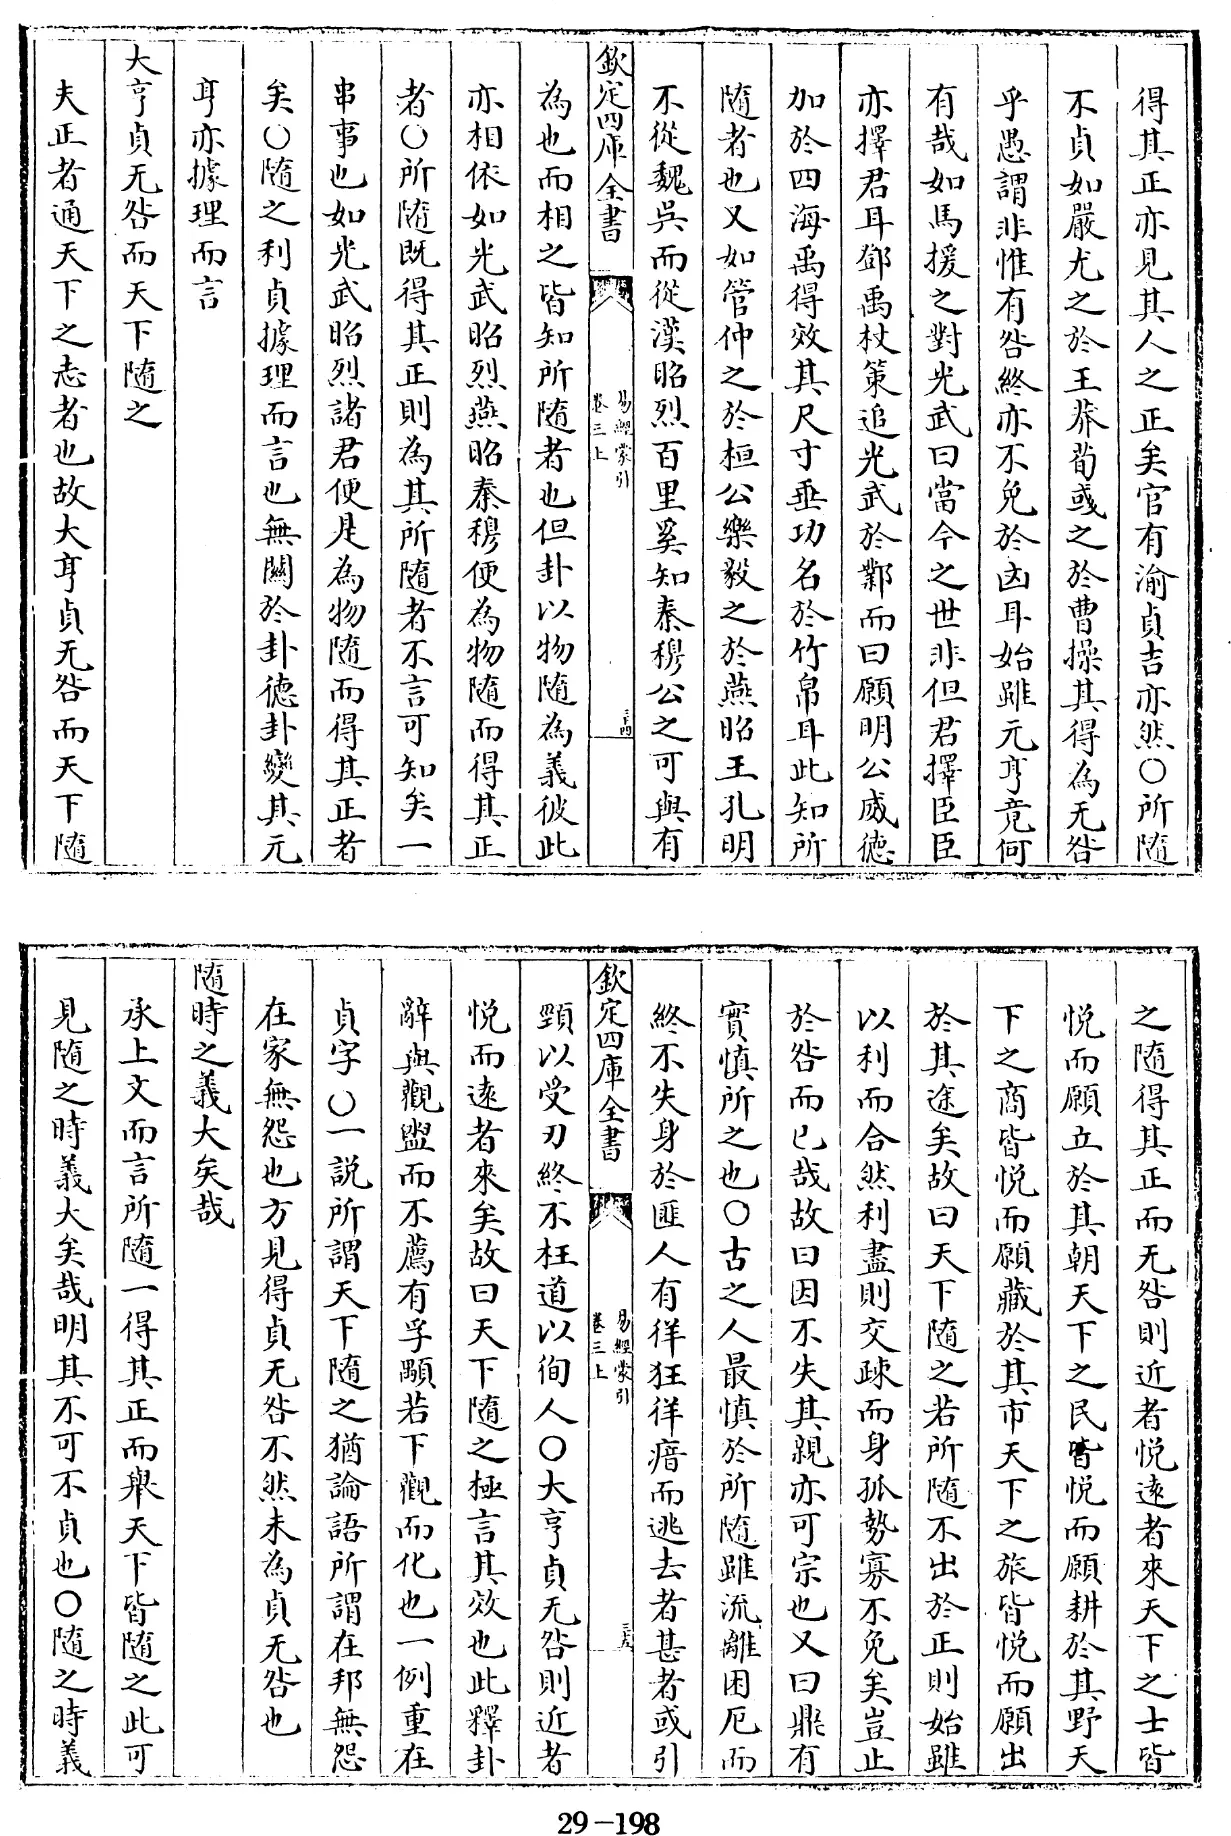 得其正亦見其人之正矣官有渝貞吉亦然○所隨
不貞如嚴尤之於王莽荀彧之於曹操其得為无咎
乎愚謂非惟有咎終亦不免於凶耳始雖元亨竟何
有哉如馬援之對光武曰當今之世非但君擇臣臣
亦擇君耳鄧禹杖策追光武於鄴而曰願明公威德
加於四海禹得效其尺寸垂功名於竹帛耳此知所
隨者也又如管仲之於桓公樂毅之於燕昭王孔明
不從魏吳而從漢昭烈百里奚知秦穆公之可與有
欽定四庫全書
易經蒙引
卷三上
三十四
為也而相之皆知所隨者也但卦以物隨為義彼此
亦相依如光武昭烈燕昭秦穆便為物隨而得其正
者○所隨既得其正則為其所隨者不言可知矣一
串事也如光武昭烈諸君便是為物隨而得其正者
矣○隨之利貞據理而言也無關於卦德卦變其元
亨亦據理而言
大亨貞无咎而天下隨之
夫正者通天下之志者也故大亨貞无咎而天下隨
之隨得其正而无咎則近者悅遠者來天下之士皆
悅而願立於其朝天下之民皆悅而願耕於其野天
下之商皆悅而願藏於其市天下之旅皆悅而願出
於其途矣故曰天下隨之若所隨不出於正則始雖
以利而合然利盡則交踈而身孤勢寡不免矣豈止
於咎而已哉故曰因不失其親亦可宗也又曰鼎有
實慎所之也○古之人最慎於所隨雖流離困厄而
終不失身於匪人有徉狂徉瘖而逃去者甚者或引
欽定四庫全書
易經蒙引
卷三上
三十五
頸以受刃終不枉道以徇人○大亨貞无咎則近者
悅而遠者來矣故曰天下隨之極言其效也此釋卦
辭與觀盥而不薦有孚顒若下觀而化也一例重在
貞字○一說所謂天下隨之猶論語所謂在邦無怨
在家無怨也方見得貞无咎不然未為貞无咎也
隨時之義大矣哉
承上文而言所隨一得其正而舉天下皆隨之此可
見隨之時義大矣哉明其不可不貞也○隨之時義
29-198